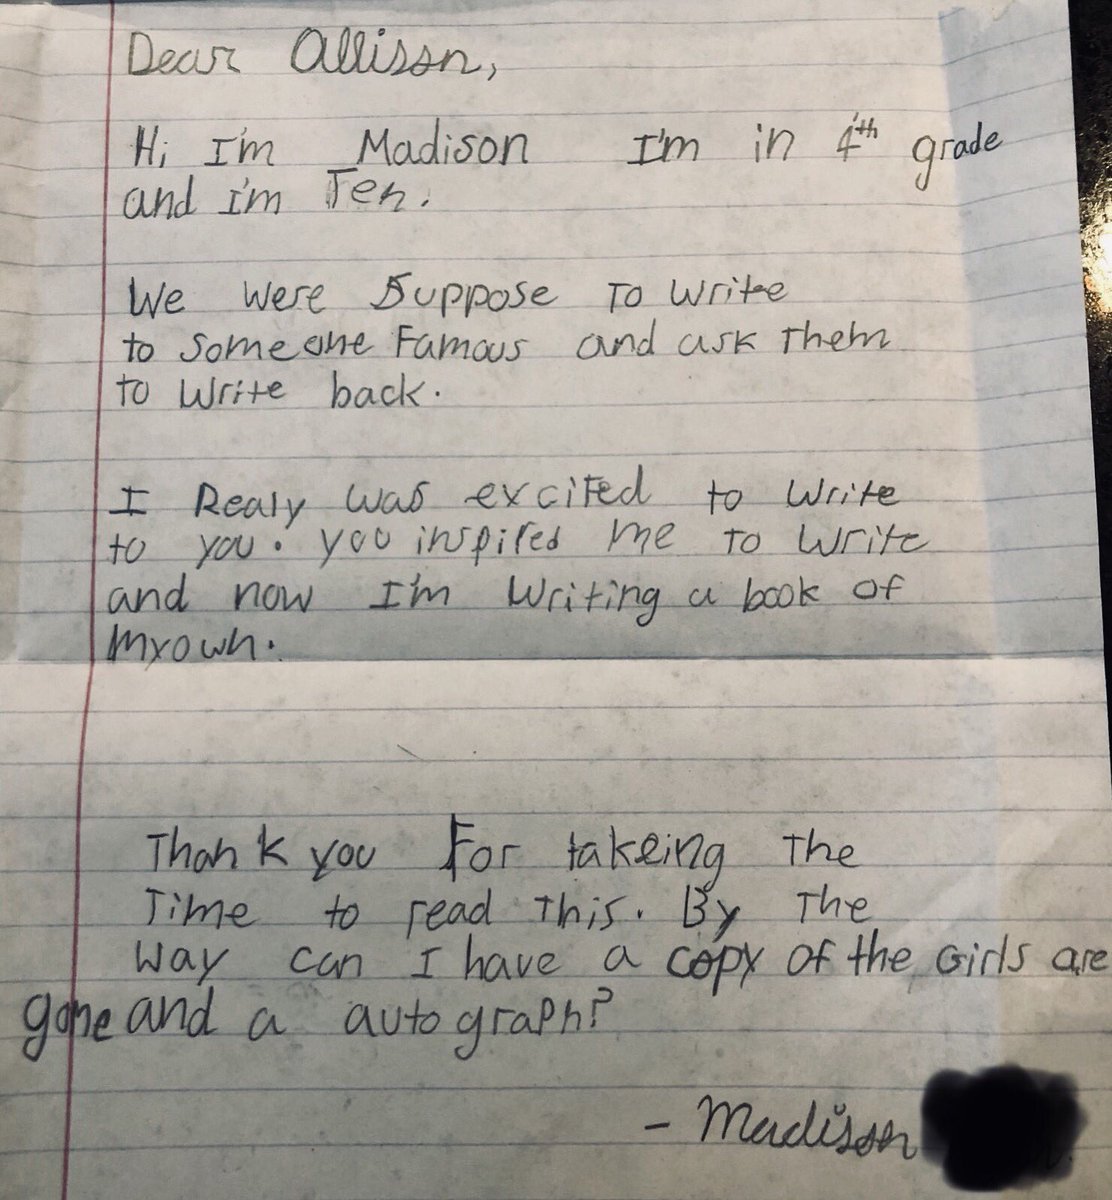 Dear Allison,
Hi I'm Madison I'm in 4th grade
and I'm Ten.
We were Suppose To write
to someone Famous and ask Them
to write back.
I Realy was excited to write
to you. you inspired me To write
and now I'm writing a book of
my own.
Thank you For takeing The
Time to read This. By The
way can I have a copy of the Girls are
gone and a autograph?
- Madison